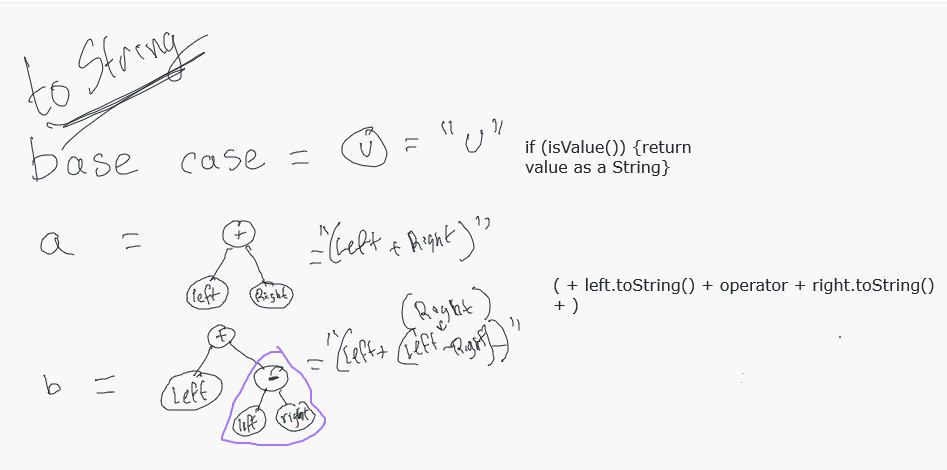 to String
base case = V = "V"
if (isValue()) {return
value as a String}
a = + = "(Left + Right)"
left Right
( + left.toString() + operator + right.toString()
+ )
(Right)
b = + = "(Left + (Left - Right))"
Left -
left right